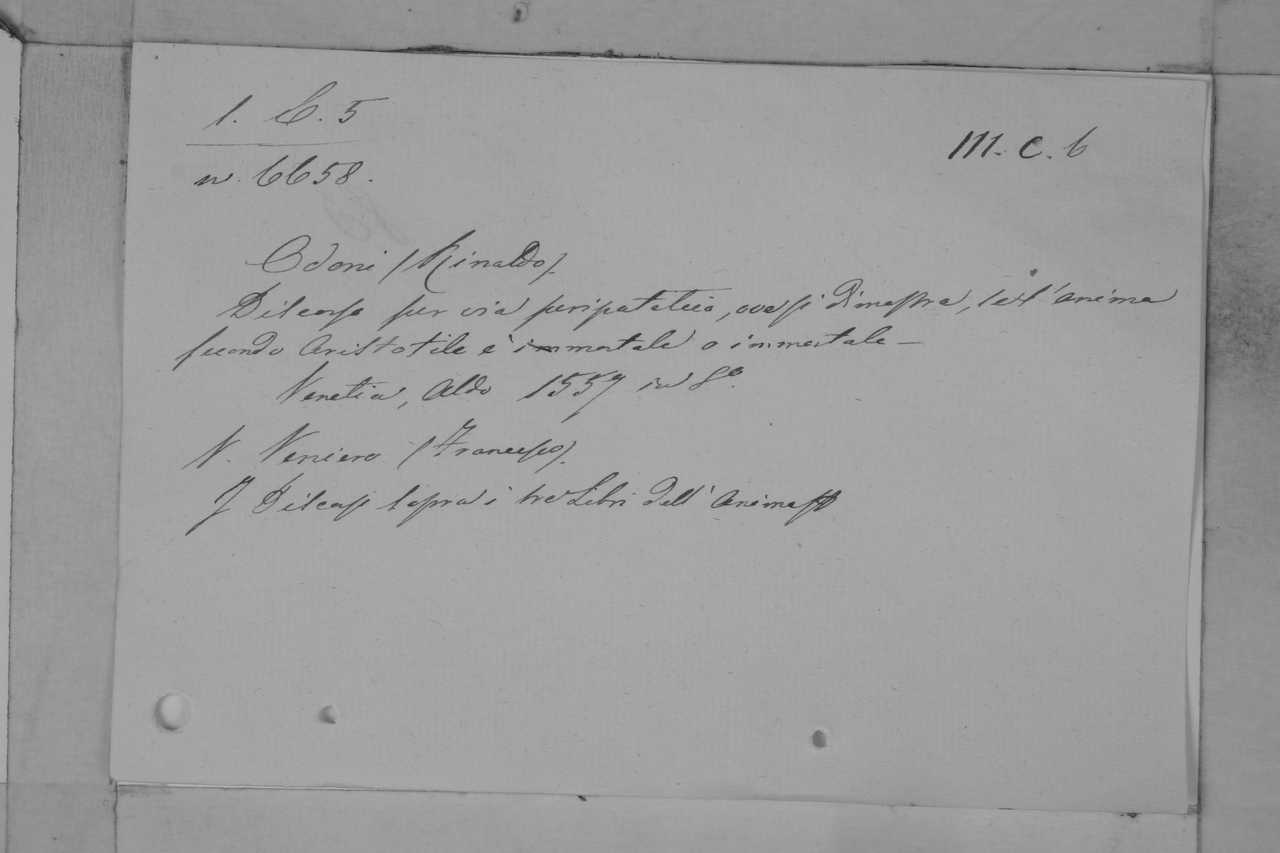 1. C. 5
III. C. 6
n. 6658.
Odoni (Rinaldo).
Discorso per via peripatetica, ove si dimostra, se l'anima
secondo Aristotile è mortale o immortale —
Venetia, Aldo 1557 in 8º.
V. Veniero (Francesco).
I Discorsi sopra i tre Libri dell' Anima